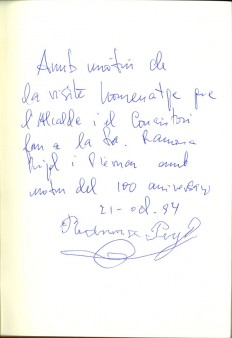 Amb motiu de
la visita homenatge que
l'Alcalde i el Consistori
fan a la Sra. Ramona
i amb
motiu del 100 aniversari
21-oct.94